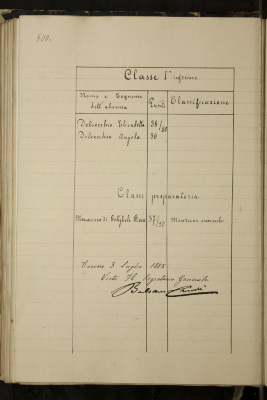 500.
Classe 1ª inferiore
Nome e Cognome dell'alunna Punti Classificazione
Delvecchio Elisabetta 28/30
Delvecchio Angela 30
Classe preparatoria
di 27/30 Menzione onorevole
Torino 3 Luglio 1888
Visto Il Segretario Generale